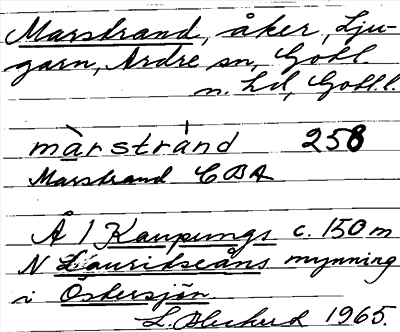 Marstrand, åker, Lju-
garn, Ardre sn, Gotl.
n. hd, Gotl.l.
màrstránd 258
Marstrand CBA
Å 1 Kaupungs c. 150 m
N Lauridseåns mynning
i Östersjön.
L. 1965.